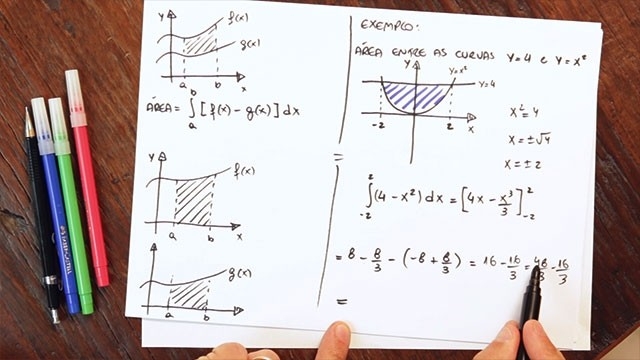 y
f(x)
g(x)
a b x
ÁREA = ∫ₐᵇ [f(x) - g(x)] dx
y
f(x)
a b x
y
g(x)
a b x
EXEMPLO:
ÁREA ENTRE AS CURVAS y=4 e y=x²
y y=x²
y=4
-2 2 x
x²=4
x=±√4
x=±2
=
∫₋₂² (4 - x²) dx = [4x - x³/3]₋₂²
= 8 - 8/3 - (-8 + 8/3) = 16 - 16/3 = 48/3 - 16/3
=